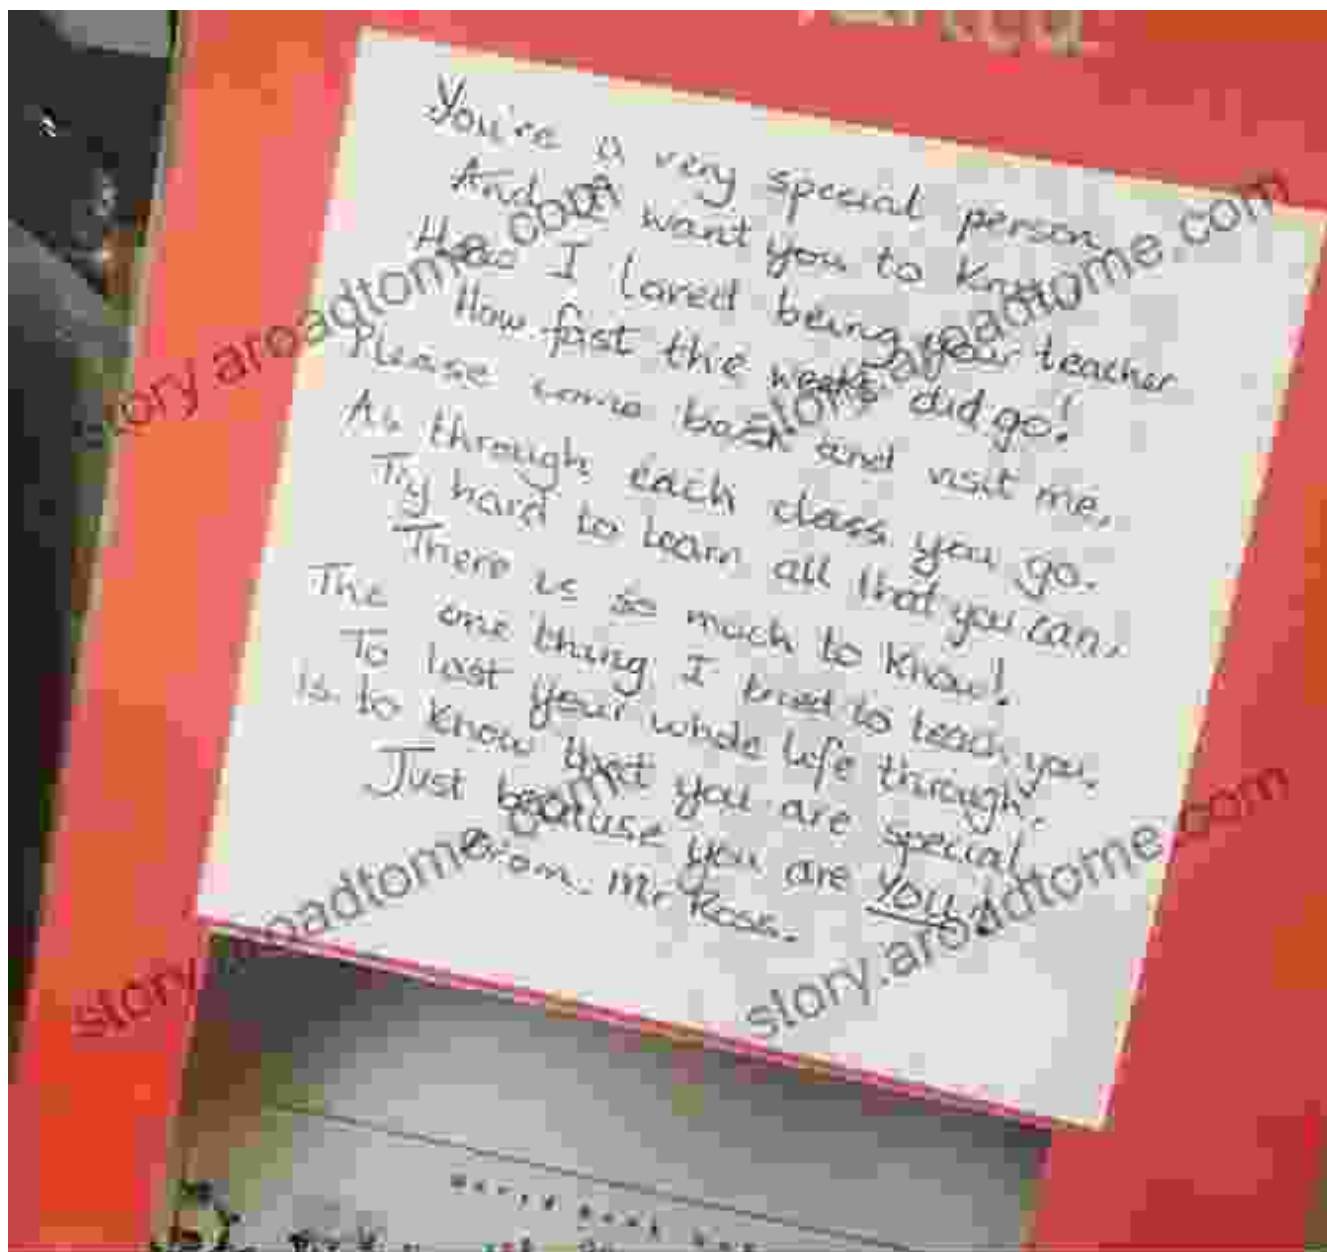 You're a very special person
And I want you to know
How I loved being your teacher
How fast the weeks did go!
Please come back and visit me,
As through each class you go.
Try hard to learn all that you can,
There is so much to know!
The one thing I tried to teach you,
To last your whole life through,
Is to know that you are special
Just because you are YOU!
From Mr Ross.
story.aroadtome.com
story.aroadtome.com
story.aroadtome.com
story.aroadtome.com